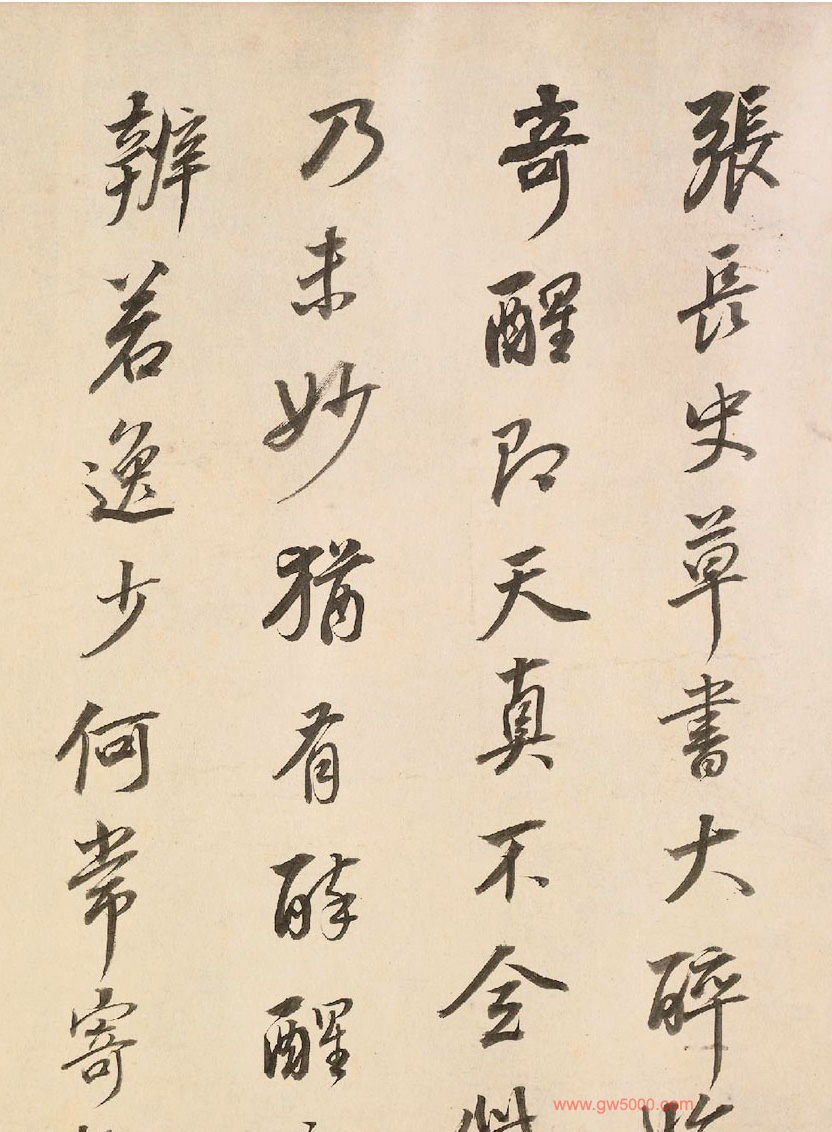 張長史草書大醉
奇醒即天真不全
乃未妙猶有醉醒
辨若逸少何常寄
www.gw5000.com